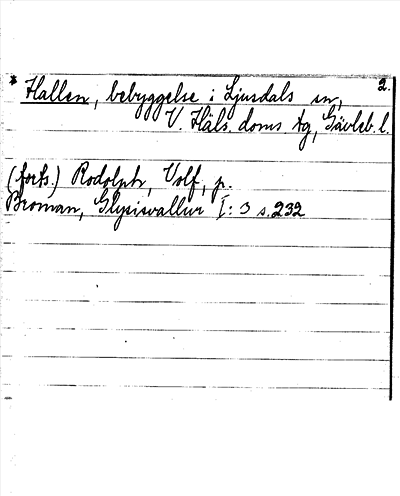 2.
* Hallen, bebyggelse i Ljusdals sn,
V. Häls. doms tg, Gävleb. l.
(forts.) Rodolph, Volf, p.
Broman, Glysisvallur I: 3 s. 232